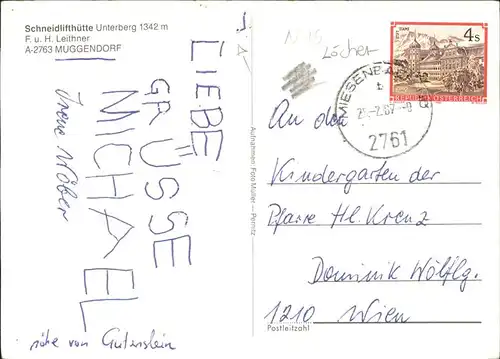 Schneidlifthütte Unterberg 1342 m
F. u. H. Leithner
A-2763 MUGGENDORF
LIEBE
GRÜSSE
MICHAEL
Irene Wöber
nähe von Gutenstein
Aufnahmen: Foto Müller — Pernitz
Löcher
4s
REPUBLIK ÖSTERREICH
MIESENBACH
b
2761
An den
Kindergarten der
Pfarre Hl. Kreuz
Dominik Wölflg.
1210 Wien
Postleitzahl